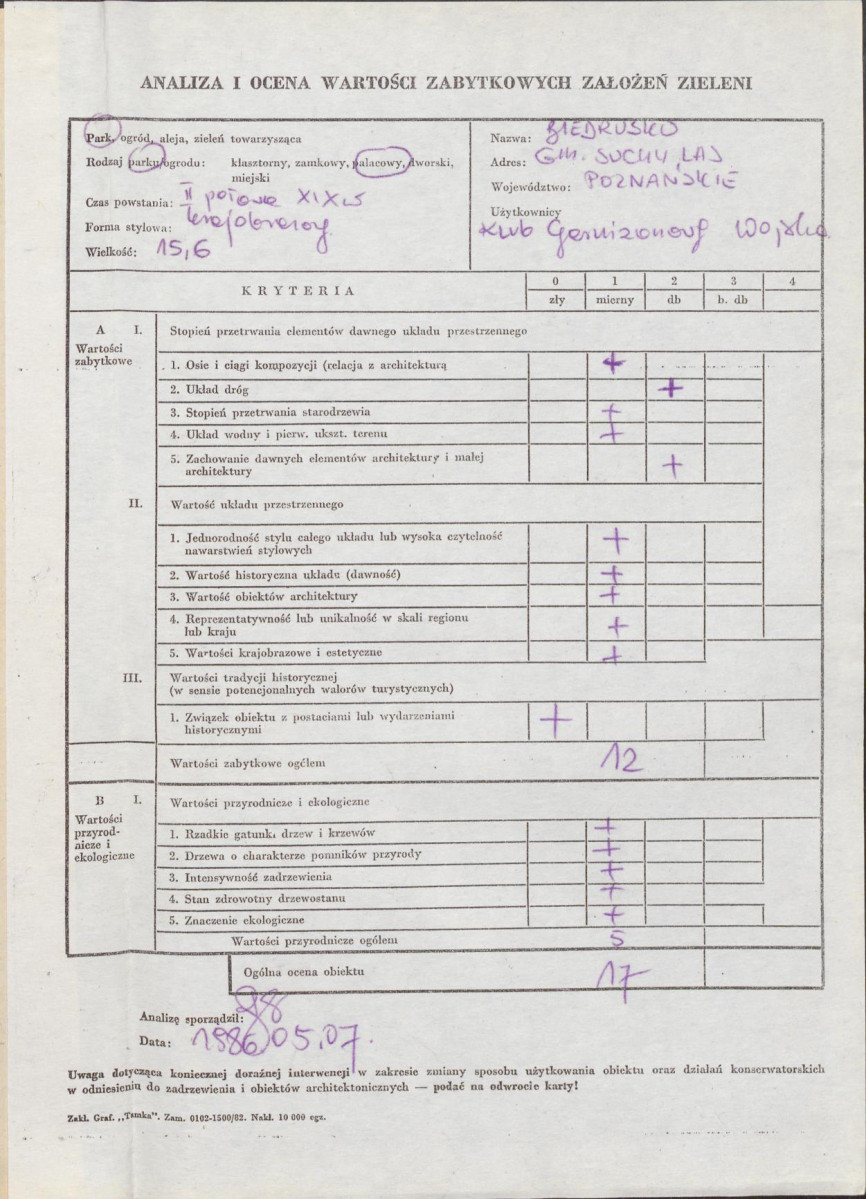 ANALIZA I OCENA WARTOŚCI ZABYTKOWYCH ZAŁOŻEŃ ZIELENI
Park, ogród, aleja, zieleń towarzysząca
Rodzaj parku/ogrodu: klasztorny, zamkowy, pałacowy, dworski,
miejski
Czas powstania: II połowa XIX w
Forma stylowa: krajobrazowy
Wielkość: 15,6
Nazwa: BIEDRUSKO
Adres: GM. SUCHY LAS
Województwo: POZNAŃSKIE
Użytkownicy
Klub Garnizonowy Wojska
KRYTERIA
0 1 2 3 4
zły mierny db b. db
A I. Stopień przetrwania elementów dawnego układu przestrzennego
Wartości
zabytkowe
1. Osie i ciągi kompozycji (relacja z architekturą +
2. Układ dróg +
3. Stopień przetrwania starodrzewia +
4. Układ wodny i pierw. ukszt. terenu +
5. Zachowanie dawnych elementów architektury i małej
architektury +
II. Wartość układu przestrzennego
1. Jednorodność stylu całego układu lub wysoka czytelność
nawarstwień stylowych +
2. Wartość historyczna układu (dawność) +
3. Wartość obiektów architektury +
4. Reprezentatywność lub unikalność w skali regionu
lub kraju +
5. Wartości krajobrazowe i estetyczne +
III. Wartości tradycji historycznej
(w sensie potencjonalnych walorów turystycznych)
1. Związek obiektu z postaciami lub wydarzeniami
historycznymi +
Wartości zabytkowe ogółem 12
B I. Wartości przyrodnicze i ekologiczne
Wartości
przyrod-
nicze i
ekologiczne
1. Rzadkie gatunki drzew i krzewów +
2. Drzewa o charakterze pomników przyrody +
3. Intensywność zadrzewienia +
4. Stan zdrowotny drzewostanu +
5. Znaczenie ekologiczne +
Wartości przyrodnicze ogółem 5
Ogólna ocena obiektu 17
Analizę sporządził:
Data: 1986 05.07.
Uwaga dotycząca koniecznej doraźnej interwencji w zakresie zmiany sposobu użytkowania obiektu oraz działań konserwatorskich
w odniesieniu do zadrzewienia i obiektów architektonicznych — podać na odwrocie karty!
Zakł. Graf. „Tamka". Zam. 0102-1500/82. Nakł. 10 000 egz.